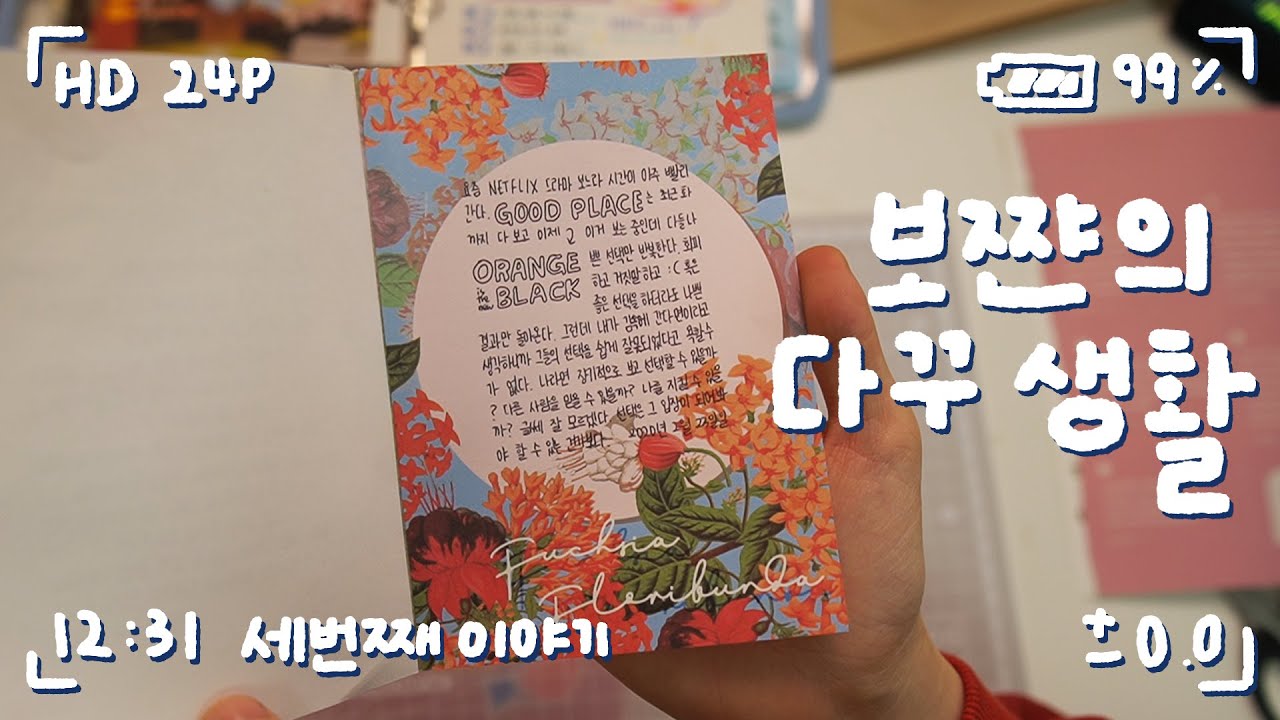 HD 24P
99%
보쨘의
다꾸 생활
요즘 NETFLIX 드라마 보느라 시간이 아주 빨리
간다. GOOD PLACE는 최근 화
까지 다 보고 이제 이거 보는 중인데 다들 나
ORANGE
is the new
BLACK
쁜 선택만 반복한다. 회피
하고 거짓말 하고 :( 혹은
좋은 선택을 하더라도 나쁜
결과만 돌아온다. 그런데 내가 감옥에 간다면이라고
생각하니까 그들의 선택을 쉽게 잘못되었다고 욕할수
가 없다. 나라면 장기적으로 보고 선택할 수 있을까
? 다른 사람을 믿을 수 있을까? 나를 지킬 수 있을
까? 글쎄 잘 모르겠다. 선택은 그 입장이 되어봐
야 할 수 있는 건가보다. 2020년 2월
Fuchsia
Floribunda
12:31 세번째 이야기
±0.0